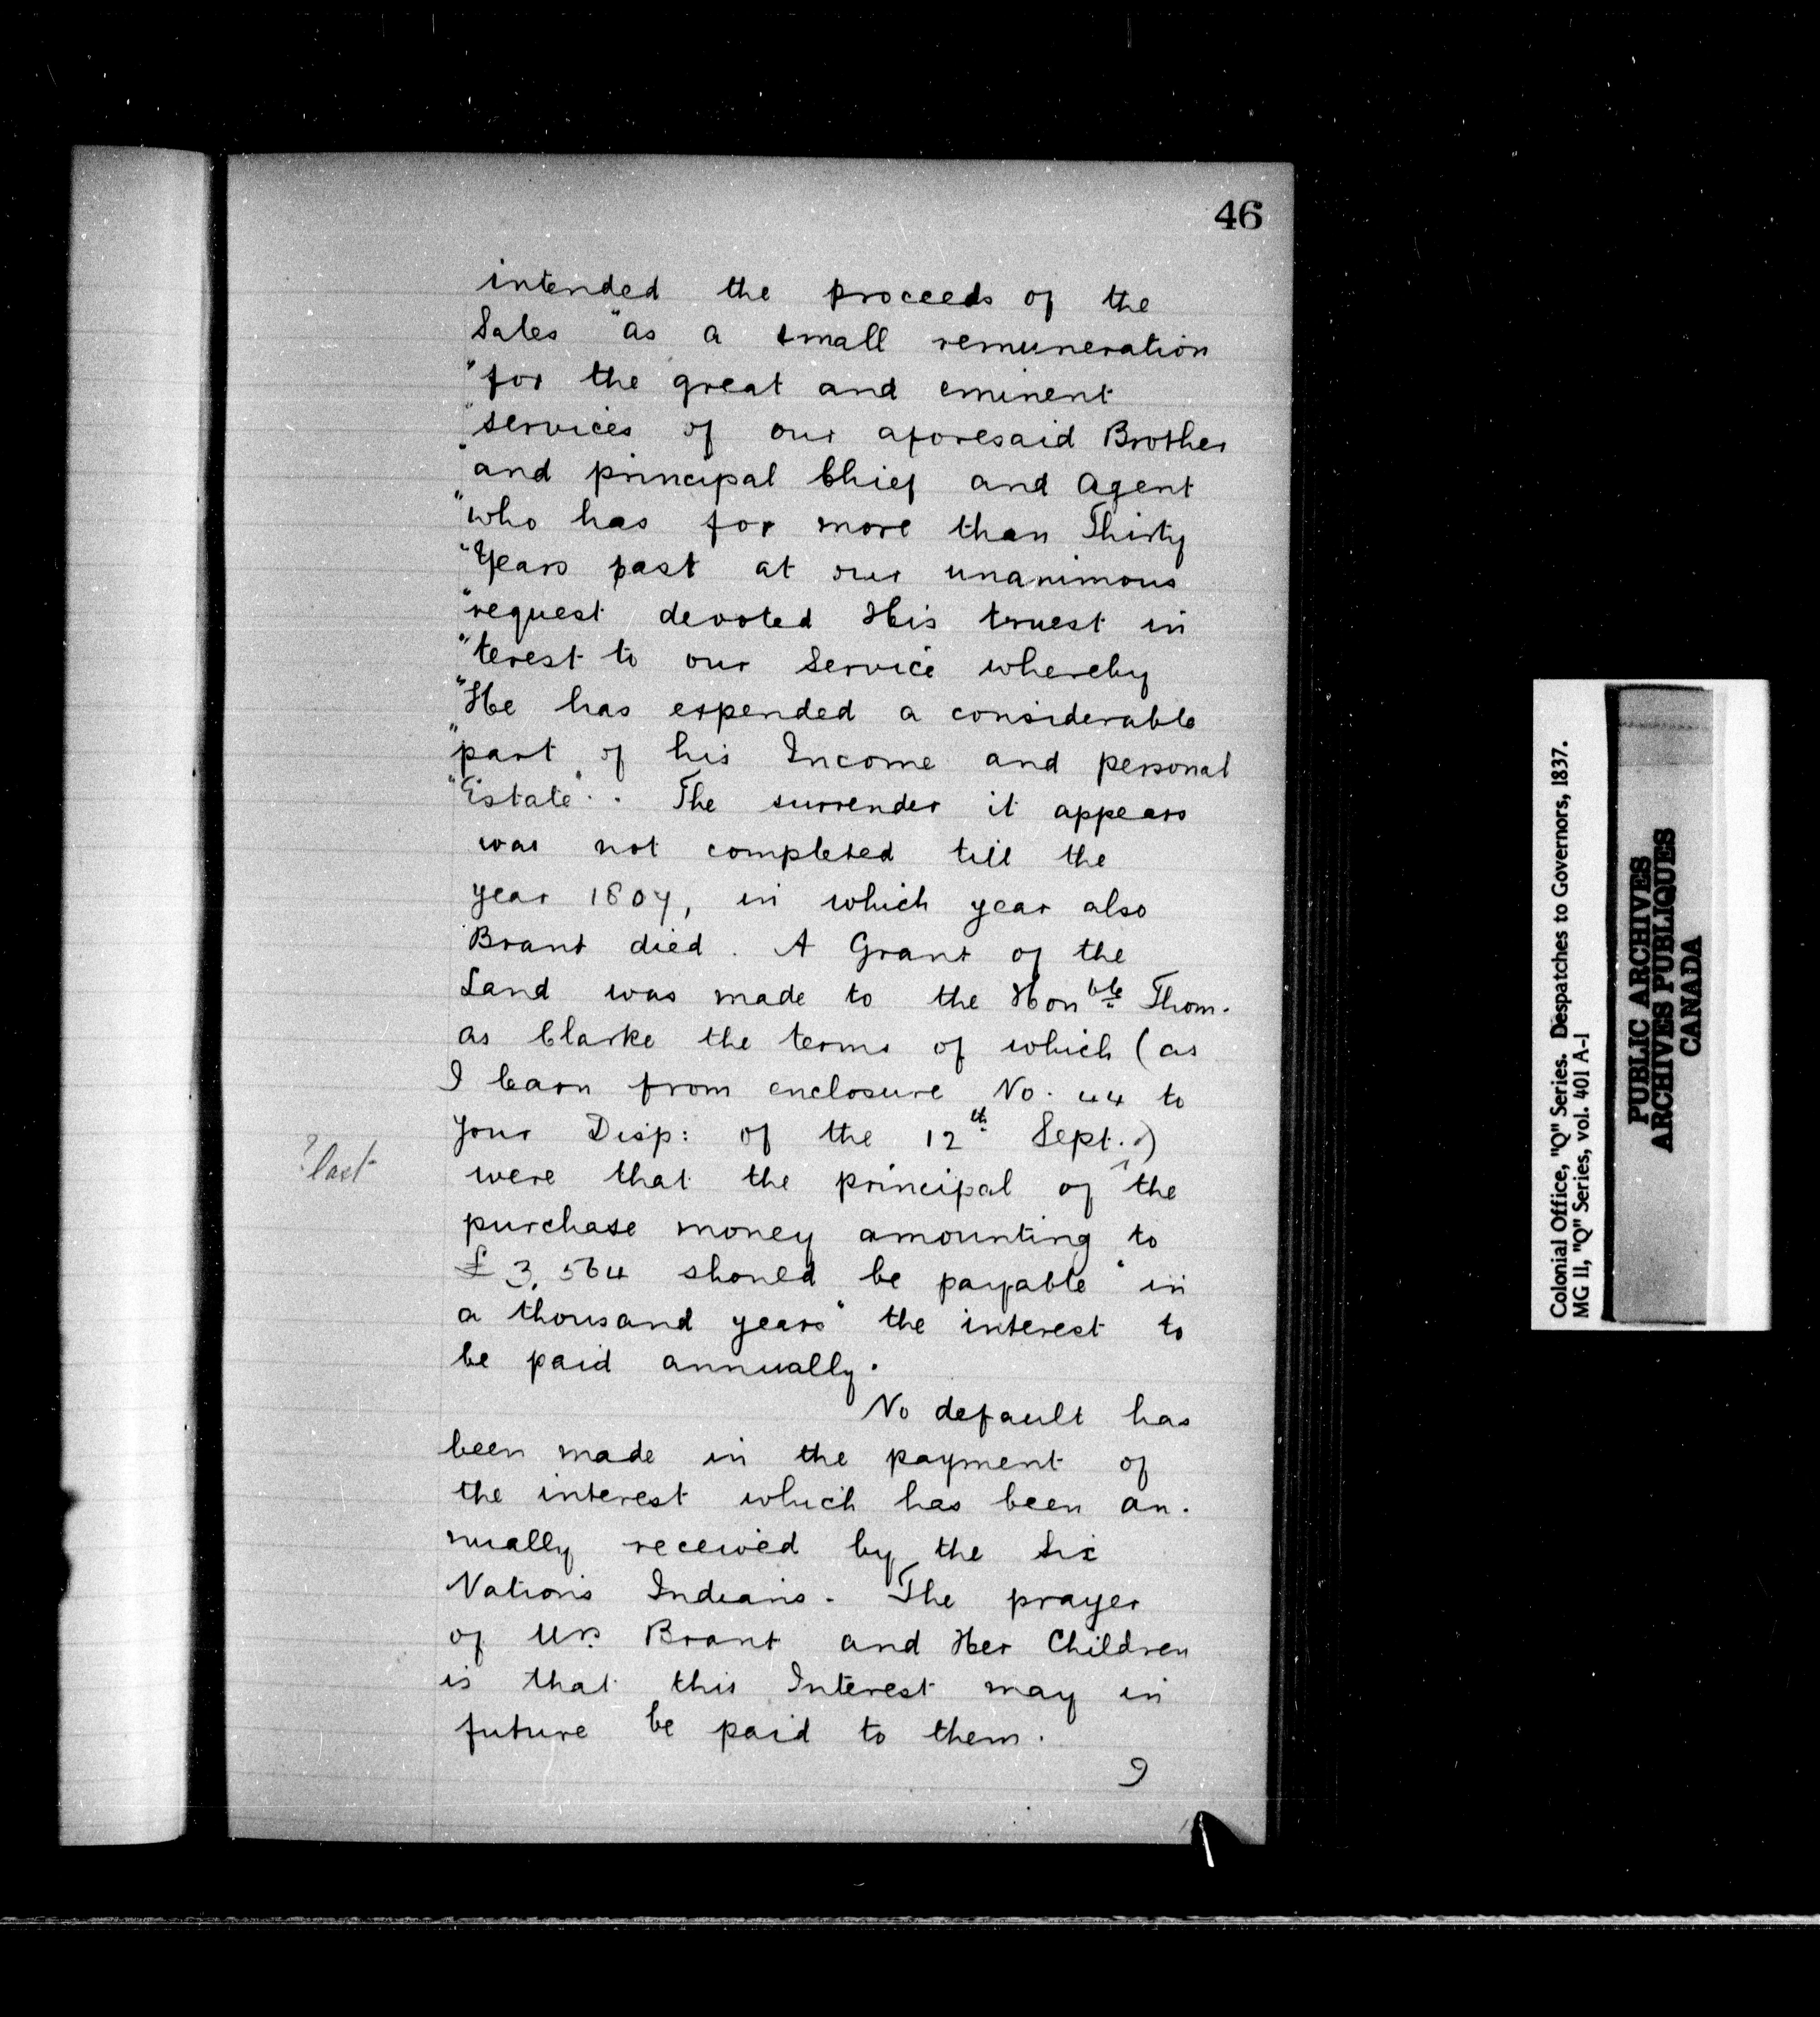 46
intended the proceeds of the
Sales "as a small remuneration
"for the great and eminent
"services of our aforesaid Brother
"and principal Chief and Agent
"who has for more than Thirty
"Years past at our unanimous
"request devoted His truest in
"terest to our Service whereby
"He has expended a considerable
"part of his Income and personal
"Estate". The surrender it appears
was not completed till the
year 1807, in which year also
Brant died. A Grant of the
Land was made to the Honble Thom-
as Clarke the terms of which (as
I learn from enclosure No. 44 to
your Disp: of the 12th Sept.)
? last
were that the principal of the
purchase money amounting to
£3,564 should be payable "in
a thousand years" the interest to
be paid annually.
No default has
been made in the payment of
the interest which has been an-
nually received by the Six
Nations Indians. The prayer
of Mrs. Brant and Her Children
is that this Interest may in
future be paid to them.
Colonial Office, "Q" Series. Despatches to Governors, 1837.
MG 11, "Q" Series, vol. 401 A-1
PUBLIC ARCHIVES
ARCHIVES PUBLIQUES
CANADA